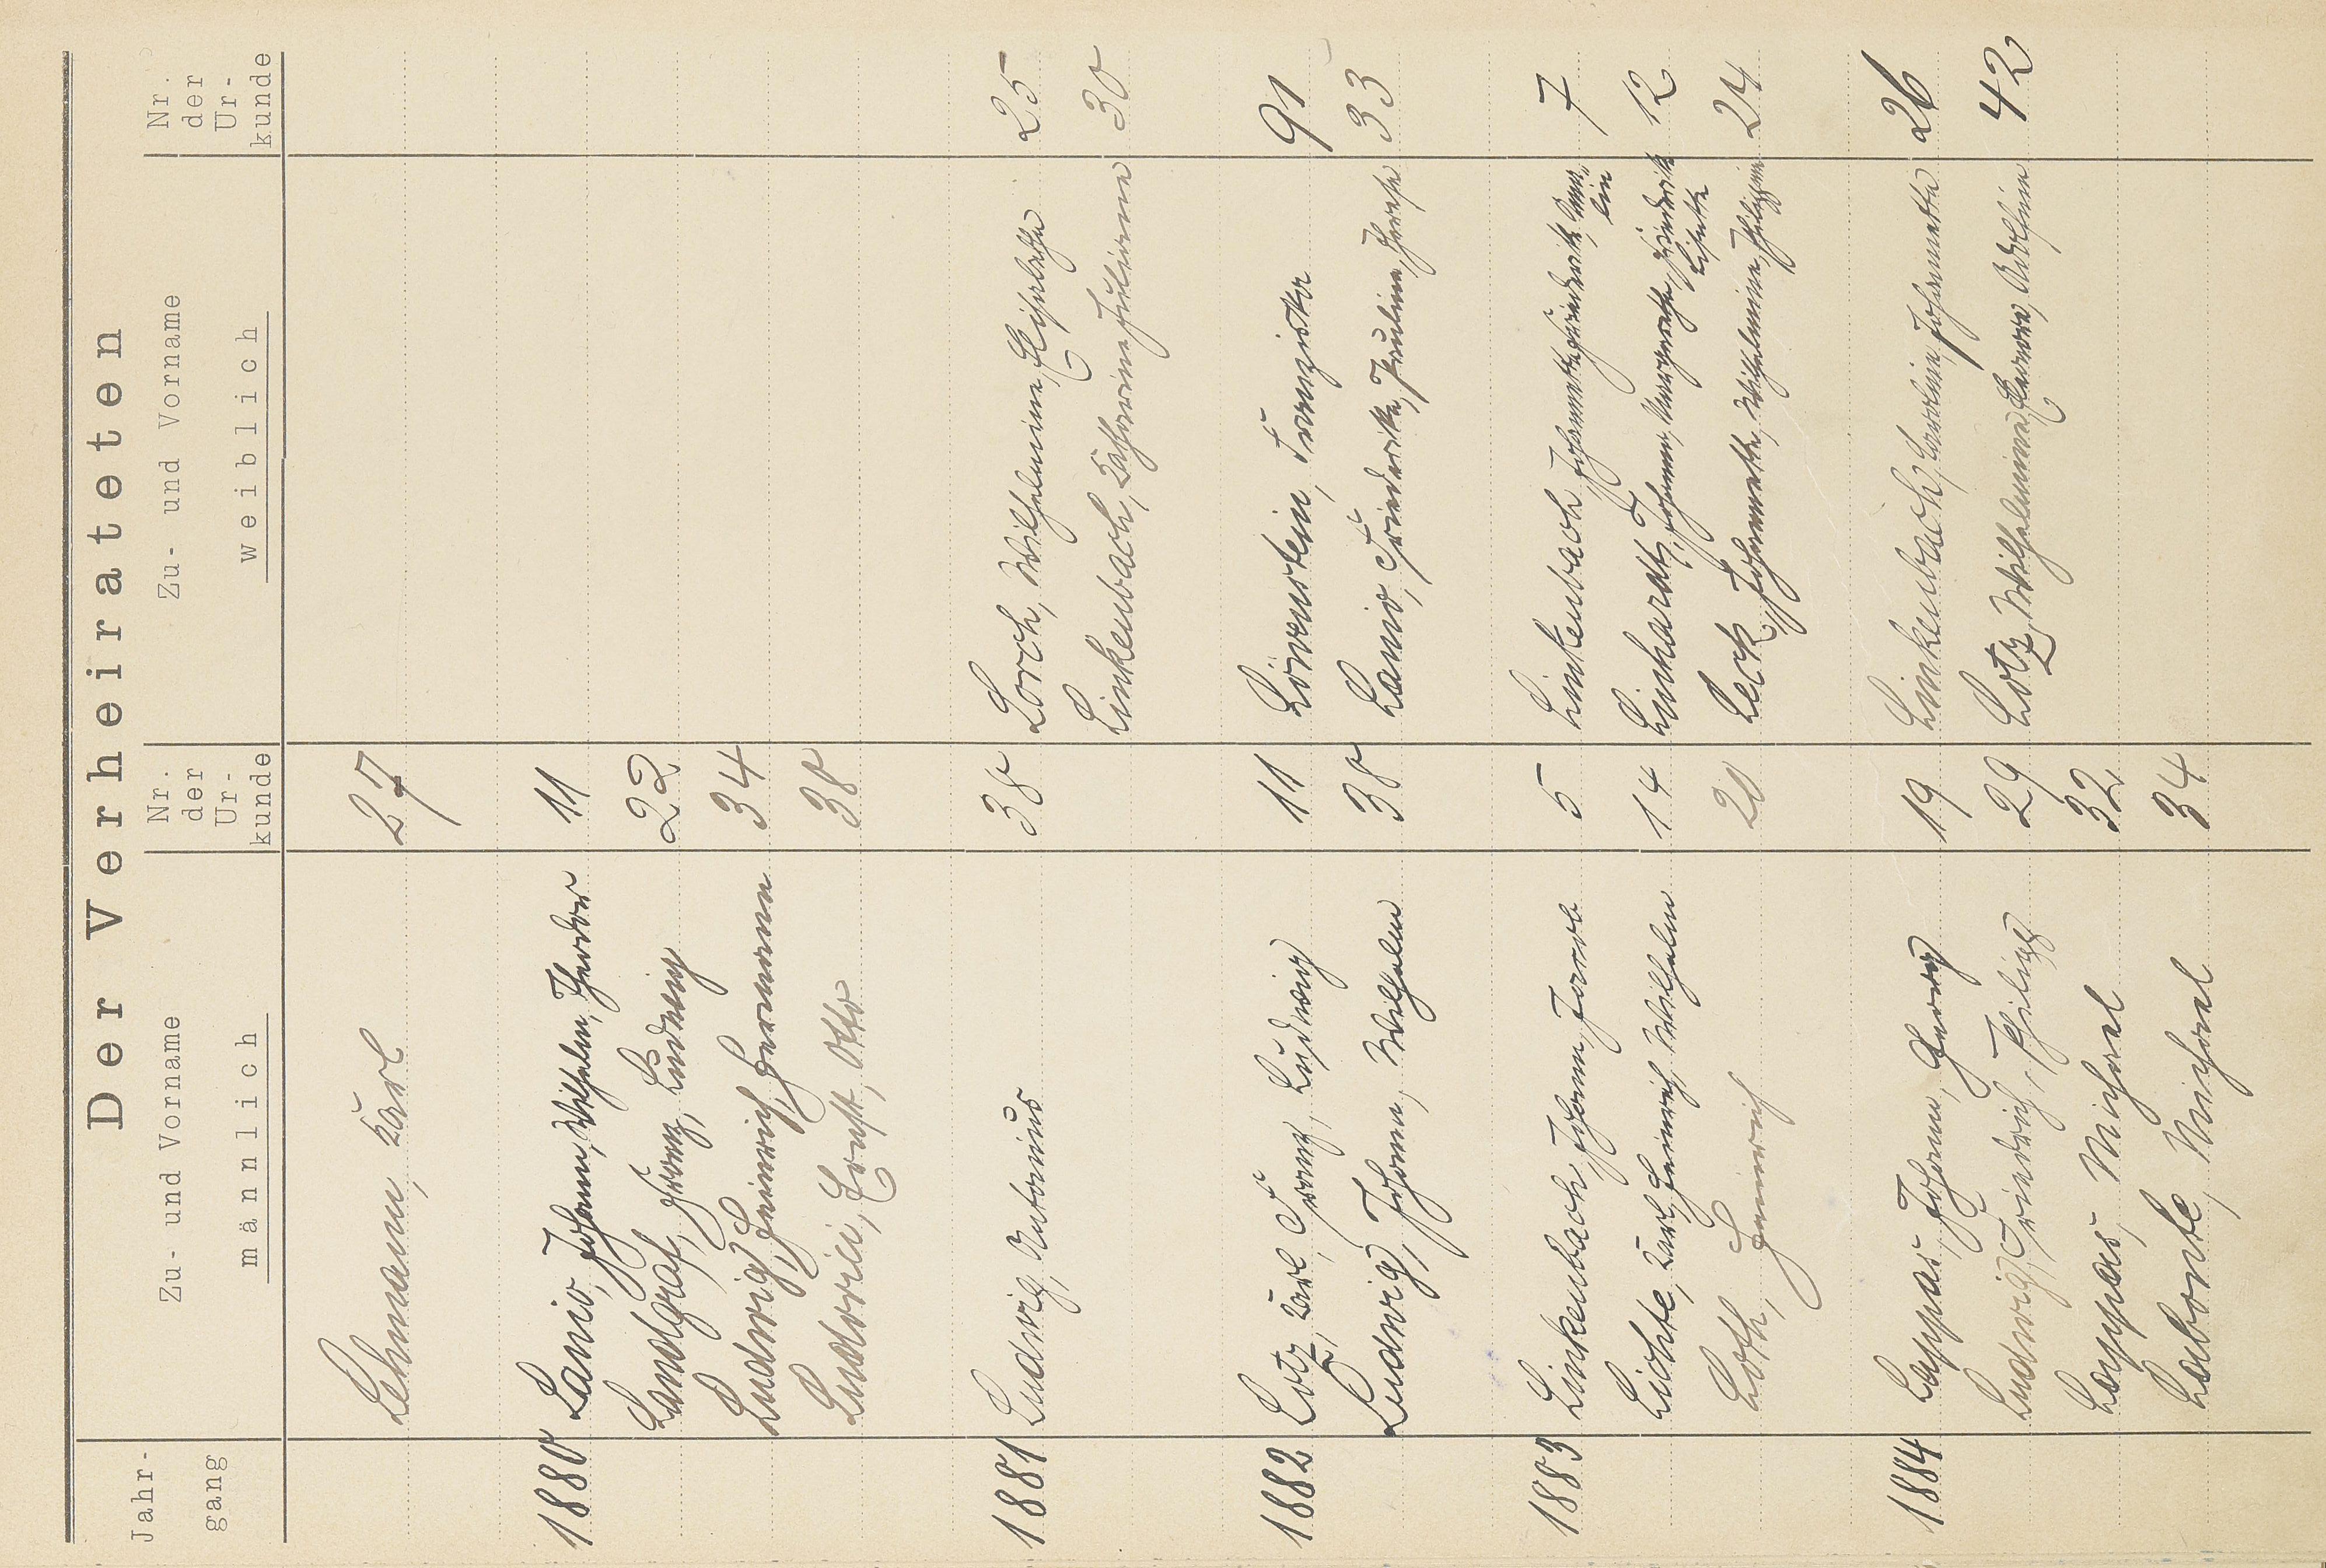 Der Verheirateten
Jahr-gang Zu- und Vorname männlich Nr. der Ur-kunde Zu- und Vorname weiblich Nr. der Ur-kunde
Lehmann, Karl 27
1880 Lanio, Johann, Wilhelm, Theodor 11
Landgraf, Franz, Ludwig 22
Ludwig, Heinrich, Hermann 34
Ludovici, Ernst, Otto 38
1881 Ludwig, Antonius 38 Lorch, Wilhelmine, Elisabetha 25
Linkenbach, Katharina, Juliana 30
1882 Lotz, Karl, Franz, Ludwig 11 Löwenstein, Franziska 91
Ludwig, Johann, Wilhelm 38 Lanio, Friederike, Pauline, Therese 33
1883 Linkenbach, Johann, Jacob 5 Linkenbach, Johannetta, Friederike, Karoline 7
Lichte, Karl, Heinrich, Wilhelm 14 Linhardt, Johanna, Margarethe, Friederike 12
Loth, Heinrich 20 Leck, Johannette, Wilhelmine, Philippine 24
1884 Lappas, Johann, Georg 19 Linkenbach, Karoline, Johannetta 26
Ludwig, Friedrich, Philipp 29 Lotz, Wilhelmine, Emma, Adolfine 42
Lappas, Michael 32
Labonte, Michael 34